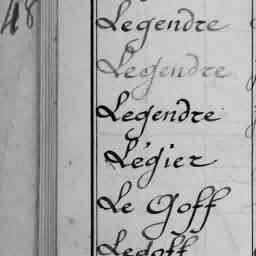 48
Legendre
Legendre
Legendre
Légier
Le Goff
Legoff